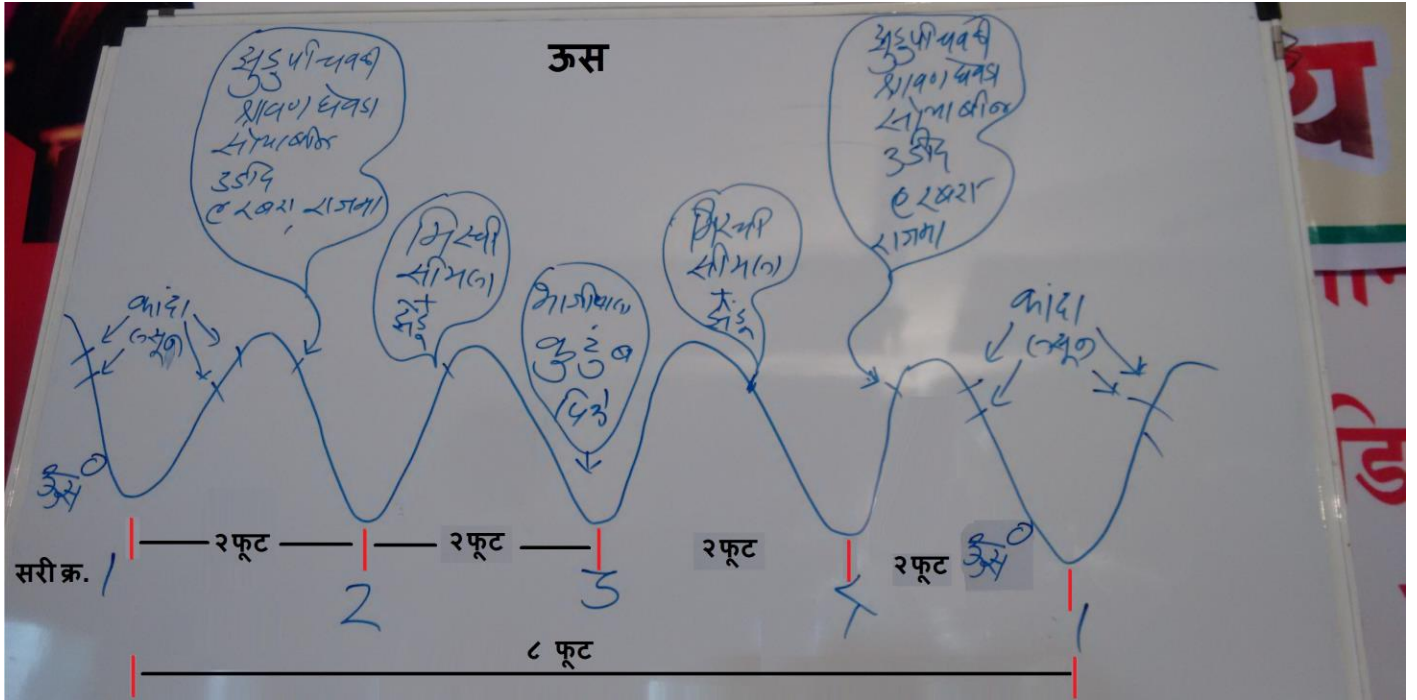 ऊस
झुडुपी चवळी
श्रावण घेवडा
सोयाबीन
उडीद
हरबरा, राजमा
मिरची
सीमला
+
झेंडू
भाजीपाला
कुटुंब
पिके
मिरची
सीमला
+
झेंडू
झुडुपी चवळी
श्रावण घेवडा
सोयाबीन
उडीद
हरबरा
राजमा
कांदा
लसूण
कांदा
लसूण
ऊस
ऊस
२फूट
२फूट
२फूट
२फूट
सरी क्र. 1
2
3
4
1
८ फूट
थ
डि